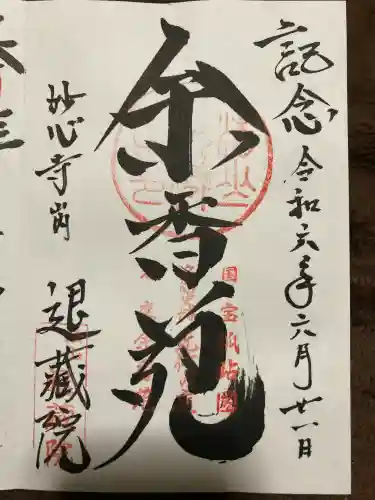 記念 令和六年六月廿一日
余香苑
国宝瓢鮎図
妙心寺内 退蔵院